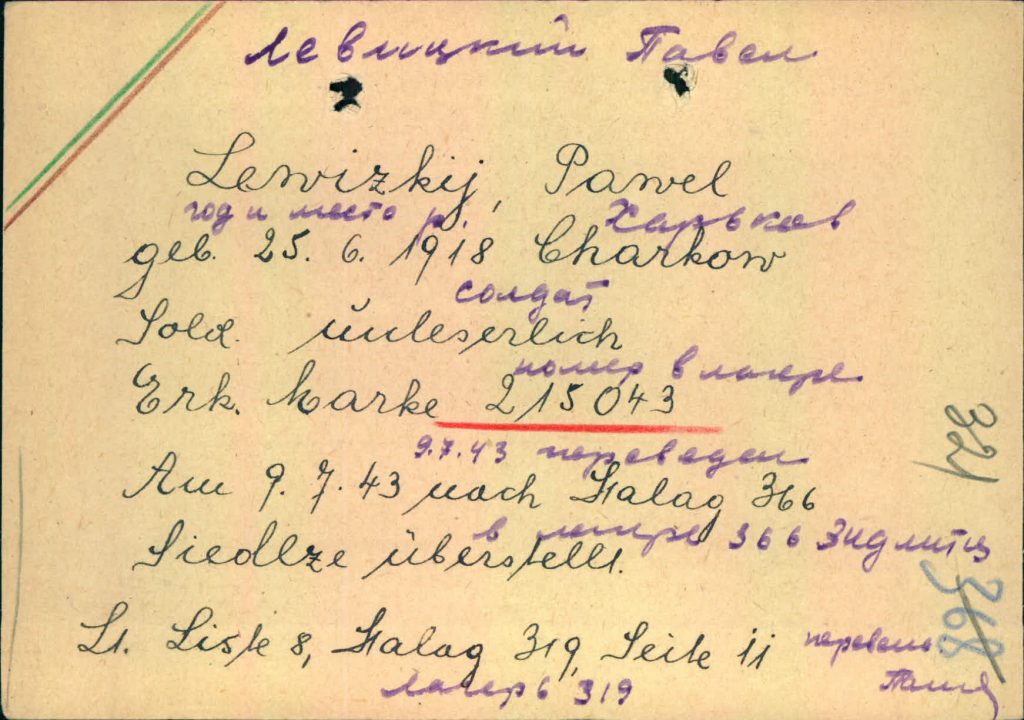 Левицкий Павел
Lewizkij, Pawel
год и место р. Харьков
geb. 25. 6. 1918 Charkow
солдат
Sold. unleserlich
номер в лагере
Erk. Marke 215043
9.7.43 переведен
Am 9. 7. 43 nach Stalag 366
в лагерь 366 Зидлитц
Siedlze überstellt.
Lt. Liste 8, Stalag 319, Seite 11
лагерь 319
перевела
321
368